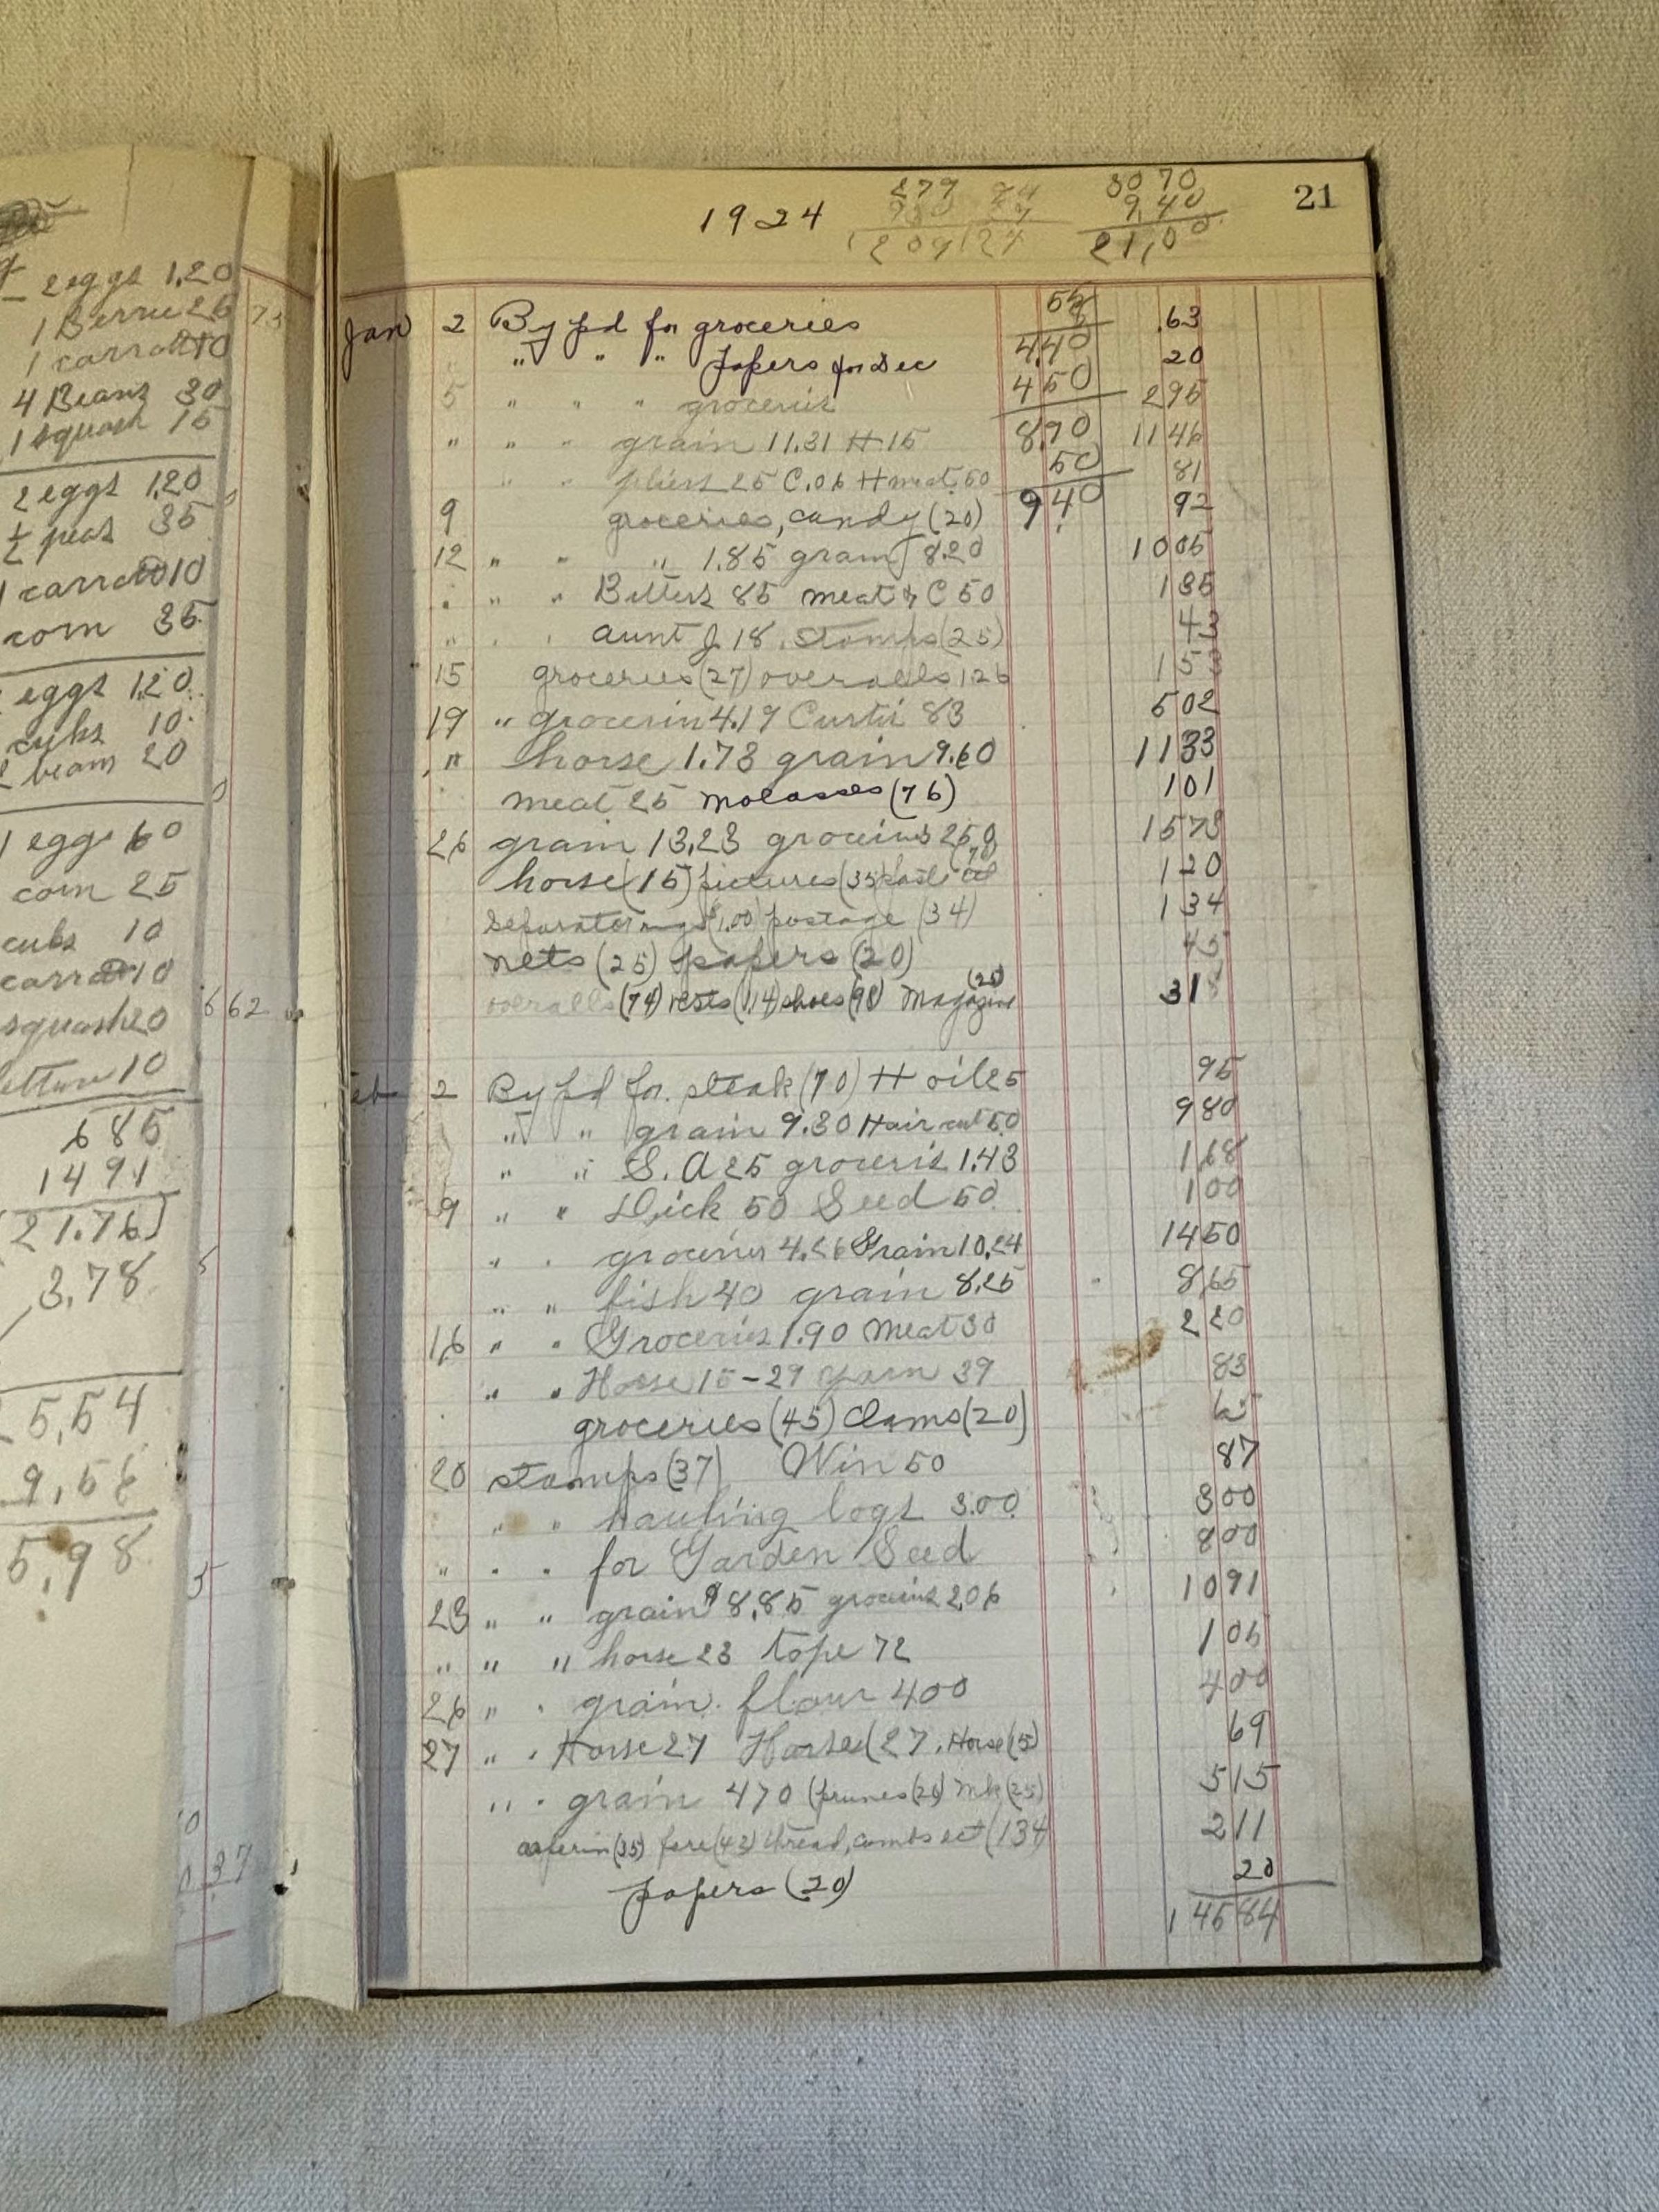 2 eggs 1.20
1 Berrie 25
1 carrott 10
4 Beans 30
1 squash 15
2 eggs 1.20
½ peas 35
1 carrott 10
corn 35
eggs 1.20
cubs 10
beans 20
1 eggs 60
corn 25
cubs 10
carrott 10
squash 20
10
685
1491
21.76
3,78
5,54
9,58
5,98
73
662
37
21
1924
30 70
9,40
21,00
Jan 2 By pd for groceries .63
" " " papers for Dec 4,40 20
5 " " " groceries 450 295
" " " grain 11.31 H 15 8,90 1146
" " pliers 25 C.06 H meat 50 50 81
9 groceries, candy (20) 940 92
12 " " " 1.85 grain 8.20 1005
" " " Bitters 85 meat & C 50 135
" " " aunt J 18 stamps (25) 43
15 groceries (27) overalls 126 153
19 " groceries 4.19 Curtis 83 502
" horse 1.73 grain 9.60 1133
meat 25 molasses (76) 101
26 grain 13,23 groceries 250 1573
horse (15) pictures (35) (70) 120
Separator rings (1.00) postage (34) 134
nets (25) papers (20) 45
overalls (74) vests (114) shoes (98) Magazine (25) 318
Feb 2 By pd for steak (70) H oil 25 95
" " grain 9.30 Hair cut 50 980
" " S. A 25 groceries 1.43 168
9 " " Dick 50 Seed 50 100
" " groceries 4.26 Grain 10,24 1450
" " fish 40 grain 8.25 865
16 " " Groceries 1.90 Meat 30 220
" " Horse 15-29 yarn 39 83
groceries (45) Clams (20) 65
20 stamps (37) Win 50 87
" " hauling logs 3.00 300
" " " for Garden Seed 800
23 " " grain $8,85 groceries 2,06 1091
" " " horse 23 tope 72 105
26 " " grain. flour 400 400
27 " " Horse 27 Horse (27. Horse (15) 69
" " grain 470 (prunes (20) Mk (25) 515
asperin (35) fare (42) thread, combs ect (134 211
papers (20) 20
145 84